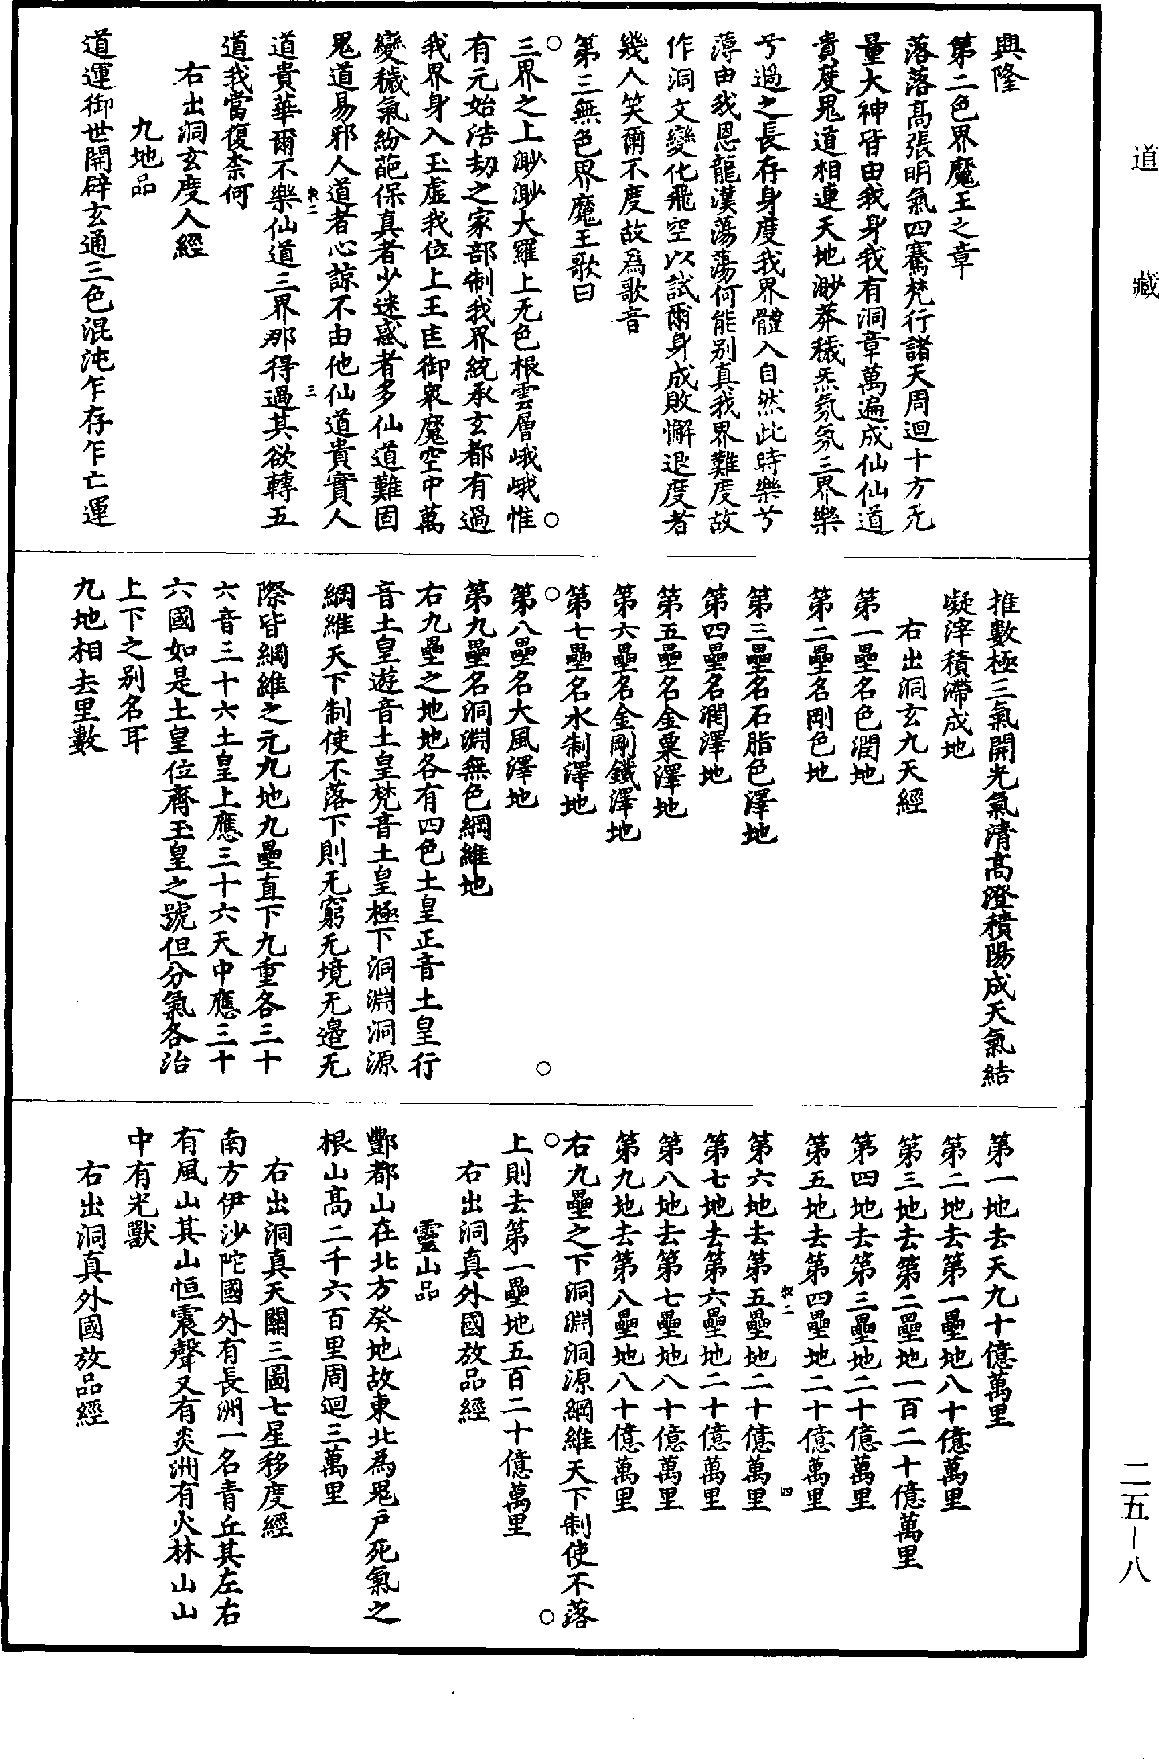 道藏
興隆
第二色界魔王之章
落落高張明氣四騫梵行諸天周迴十方无
量大神皆由我身我有洞章萬遍成仙仙道
貴度鬼道相連天地渺莽穢炁氛氛三界樂
兮過之長存身度我界體入自然此時樂兮
薄由我恩龍漢蕩蕩何能別真我界難度故
作洞文變化飛空以試爾身成敗懈退度者
幾人笑爾不度故爲歌音
第三無色界魔王歌曰
三界之上渺渺大羅上无色根雲層峨峨惟
有元始浩劫之家部制我界統承玄都有過
我界身入玉虛我位上王匡御眾魔空中萬
變穢氣紛葩保真者少迷惑者多仙道難固
鬼道易邪人道者心諒不由他仙道貴實人
道貴華爾不樂仙道三界那得過其欲轉五
道我當復柰何
右出洞玄度人經
九地品
道運御世開辟玄通三色混沌乍存乍亡運
推數極三氣開光氣清高澄積陽成天氣結
凝滓積滯成地
右出洞玄九天經
第一壘名色潤地
第二壘名剛色地
第三壘名石脂色澤地
第四壘名潤澤地
第五壘名金粟澤地
第六壘名金剛鐵澤地
第七壘名水制澤地
第八壘名大風澤地
第九壘名洞淵無色綱維地
右九壘之地地各有四色土皇正音土皇行
音土皇遊音土皇梵音土皇極下洞淵洞源
綱維天下制使不落下則无窮无境无邊无
際皆綱維之元九地九壘直下九重各三十
六音三十六土皇上應三十六天中應三十
六國如是土皇位齊玉皇之號但分氣各治
上下之別名耳
九地相去里數
第一地去天九十億萬里
第二地去第一壘地八十億萬里
第三地去第二壘地一百二十億萬里
第四地去第三壘地二十億萬里
第五地去第四壘地二十億萬里
第六地去第五壘地二十億萬里
第七地去第六壘地二十億萬里
第八地去第七壘地八十億萬里
第九地去第八壘地八十億萬里
右九壘之下洞淵洞源綱維天下制使不落
上則去第一壘地五百二十億萬里
右出洞真外國放品經
靈山品
酆都山在北方癸地故東北為鬼戶死氣之
根山高二千六百里周迴三萬里
右出洞真天關三圖七星移度經
南方伊沙陀國外有長洲一名青丘其左右
有風山其山恒震聲又有炎洲有火林山山
中有光獸
右出洞真外國放品經
二五—八